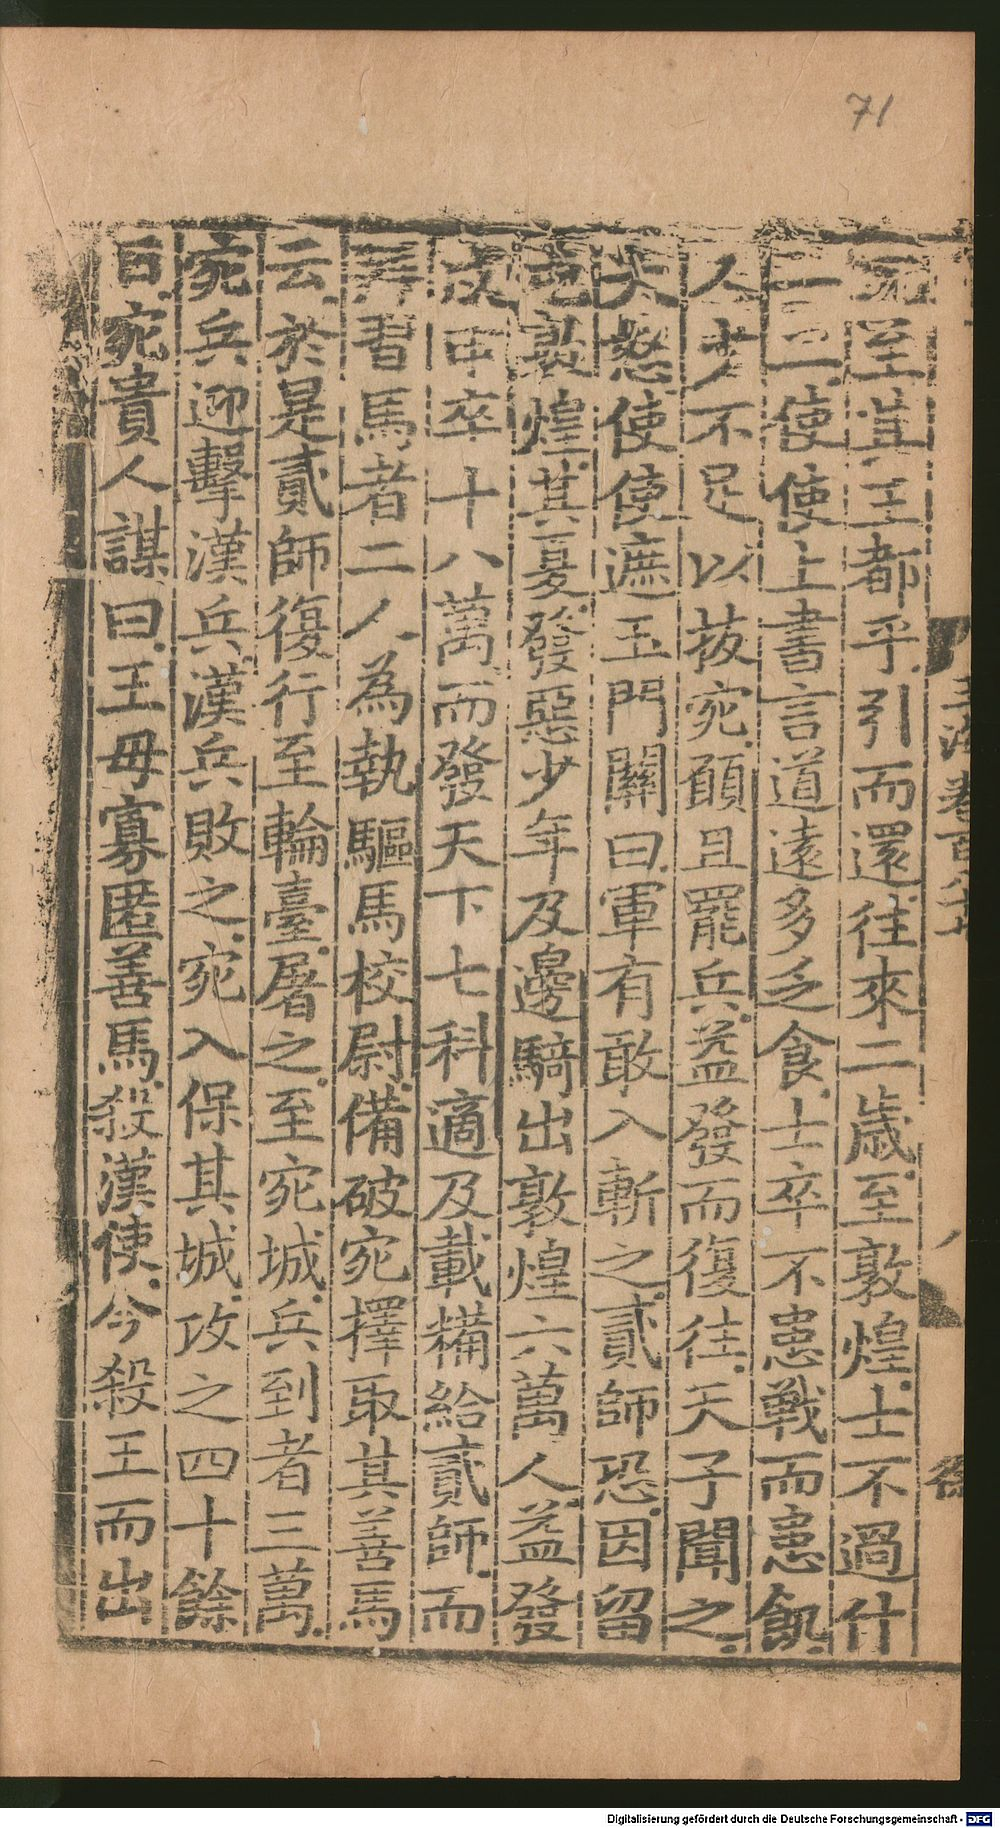 71
玉海卷百八十七
宛至其王都乎引而還往來二歲至敦煌士不過什
一二使使上書言道遠多乏食士卒不患戰而患飢
人少不足以拔宛願且罷兵益發而復往天子聞之
大怒使使遮玉門關曰軍有敢入斬之貳師恐因留
屯敦煌其夏發惡少年及邊騎出敦煌六萬人益發
戍甲卒十八萬而發天下七科適及載糒給貳師而
拜習馬者二人為執驅馬校尉備破宛擇取其善馬
云於是貳師復行至輪臺屠之至宛城兵到者三萬
宛兵迎擊漢兵漢兵敗之宛入保其城攻之四十餘
日宛貴人謀曰王毋寡匿善馬殺漢使今殺王而出
Digitalisierung gefördert durch die Deutsche Forschungsgemeinschaft - DFG